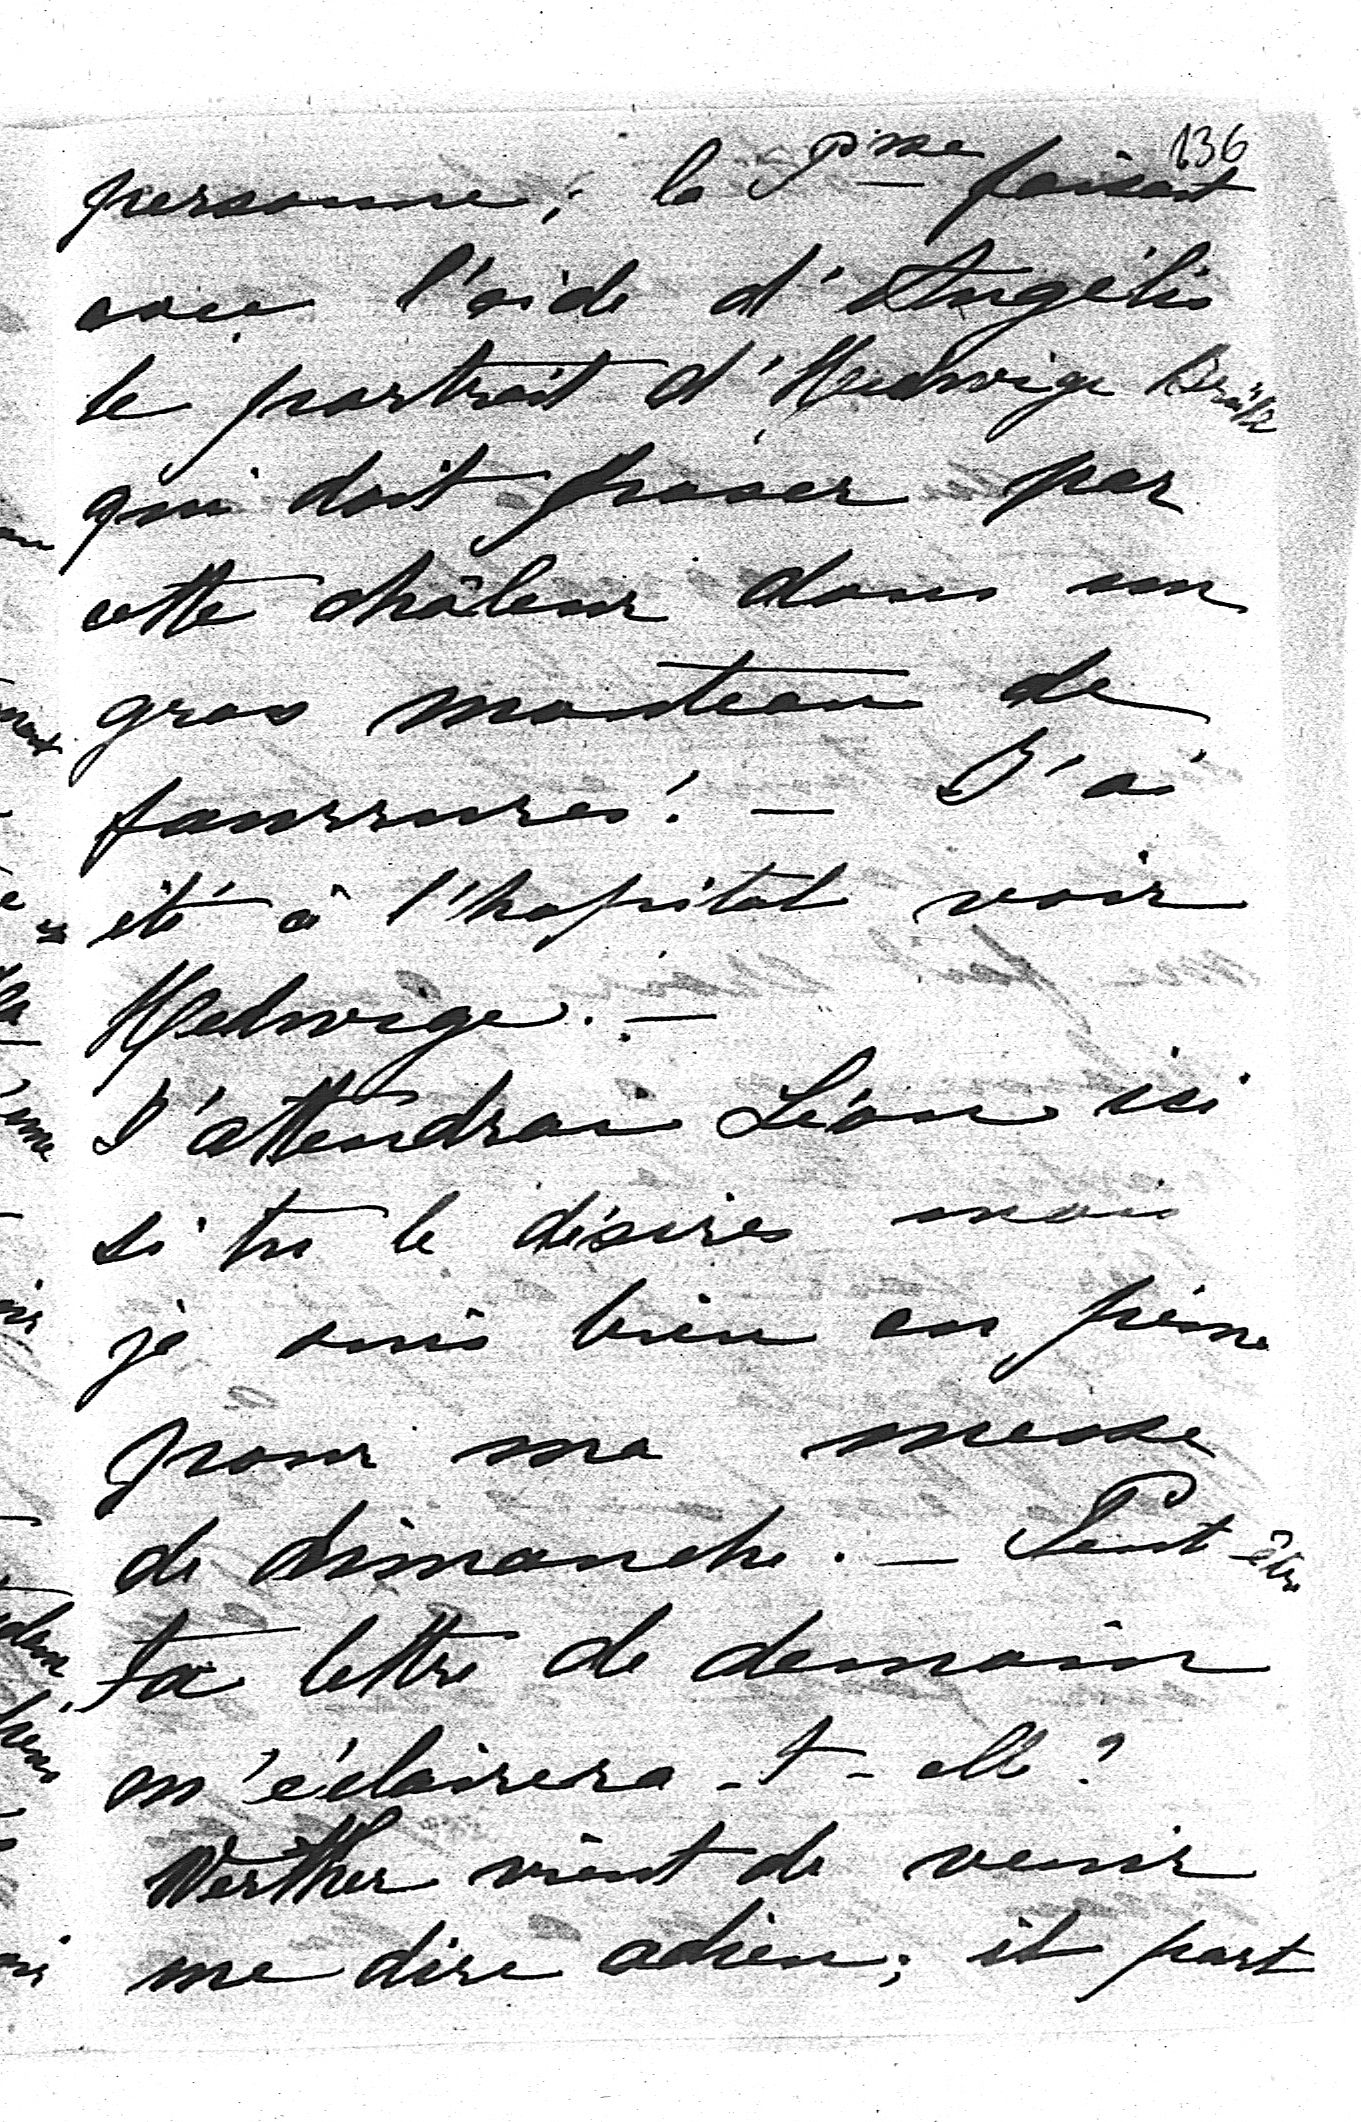 136
personne; la Psse faisait
avec l'aide d'Angéli
le portrait d'Hedwige
qui doit poser par
cette châleur dans un
gros manteau de
fourrures! — J'ai
été à l'hopital voir
Hedwige. —
J'attendrai Léon ici
si tu le désires mais
je suis bien en peine
pour ma messe
de dimanche. — Peut-être
ta lettre de demain
m'éclairera-t-elle?
Werther vient de venir
me dire adieu; il part